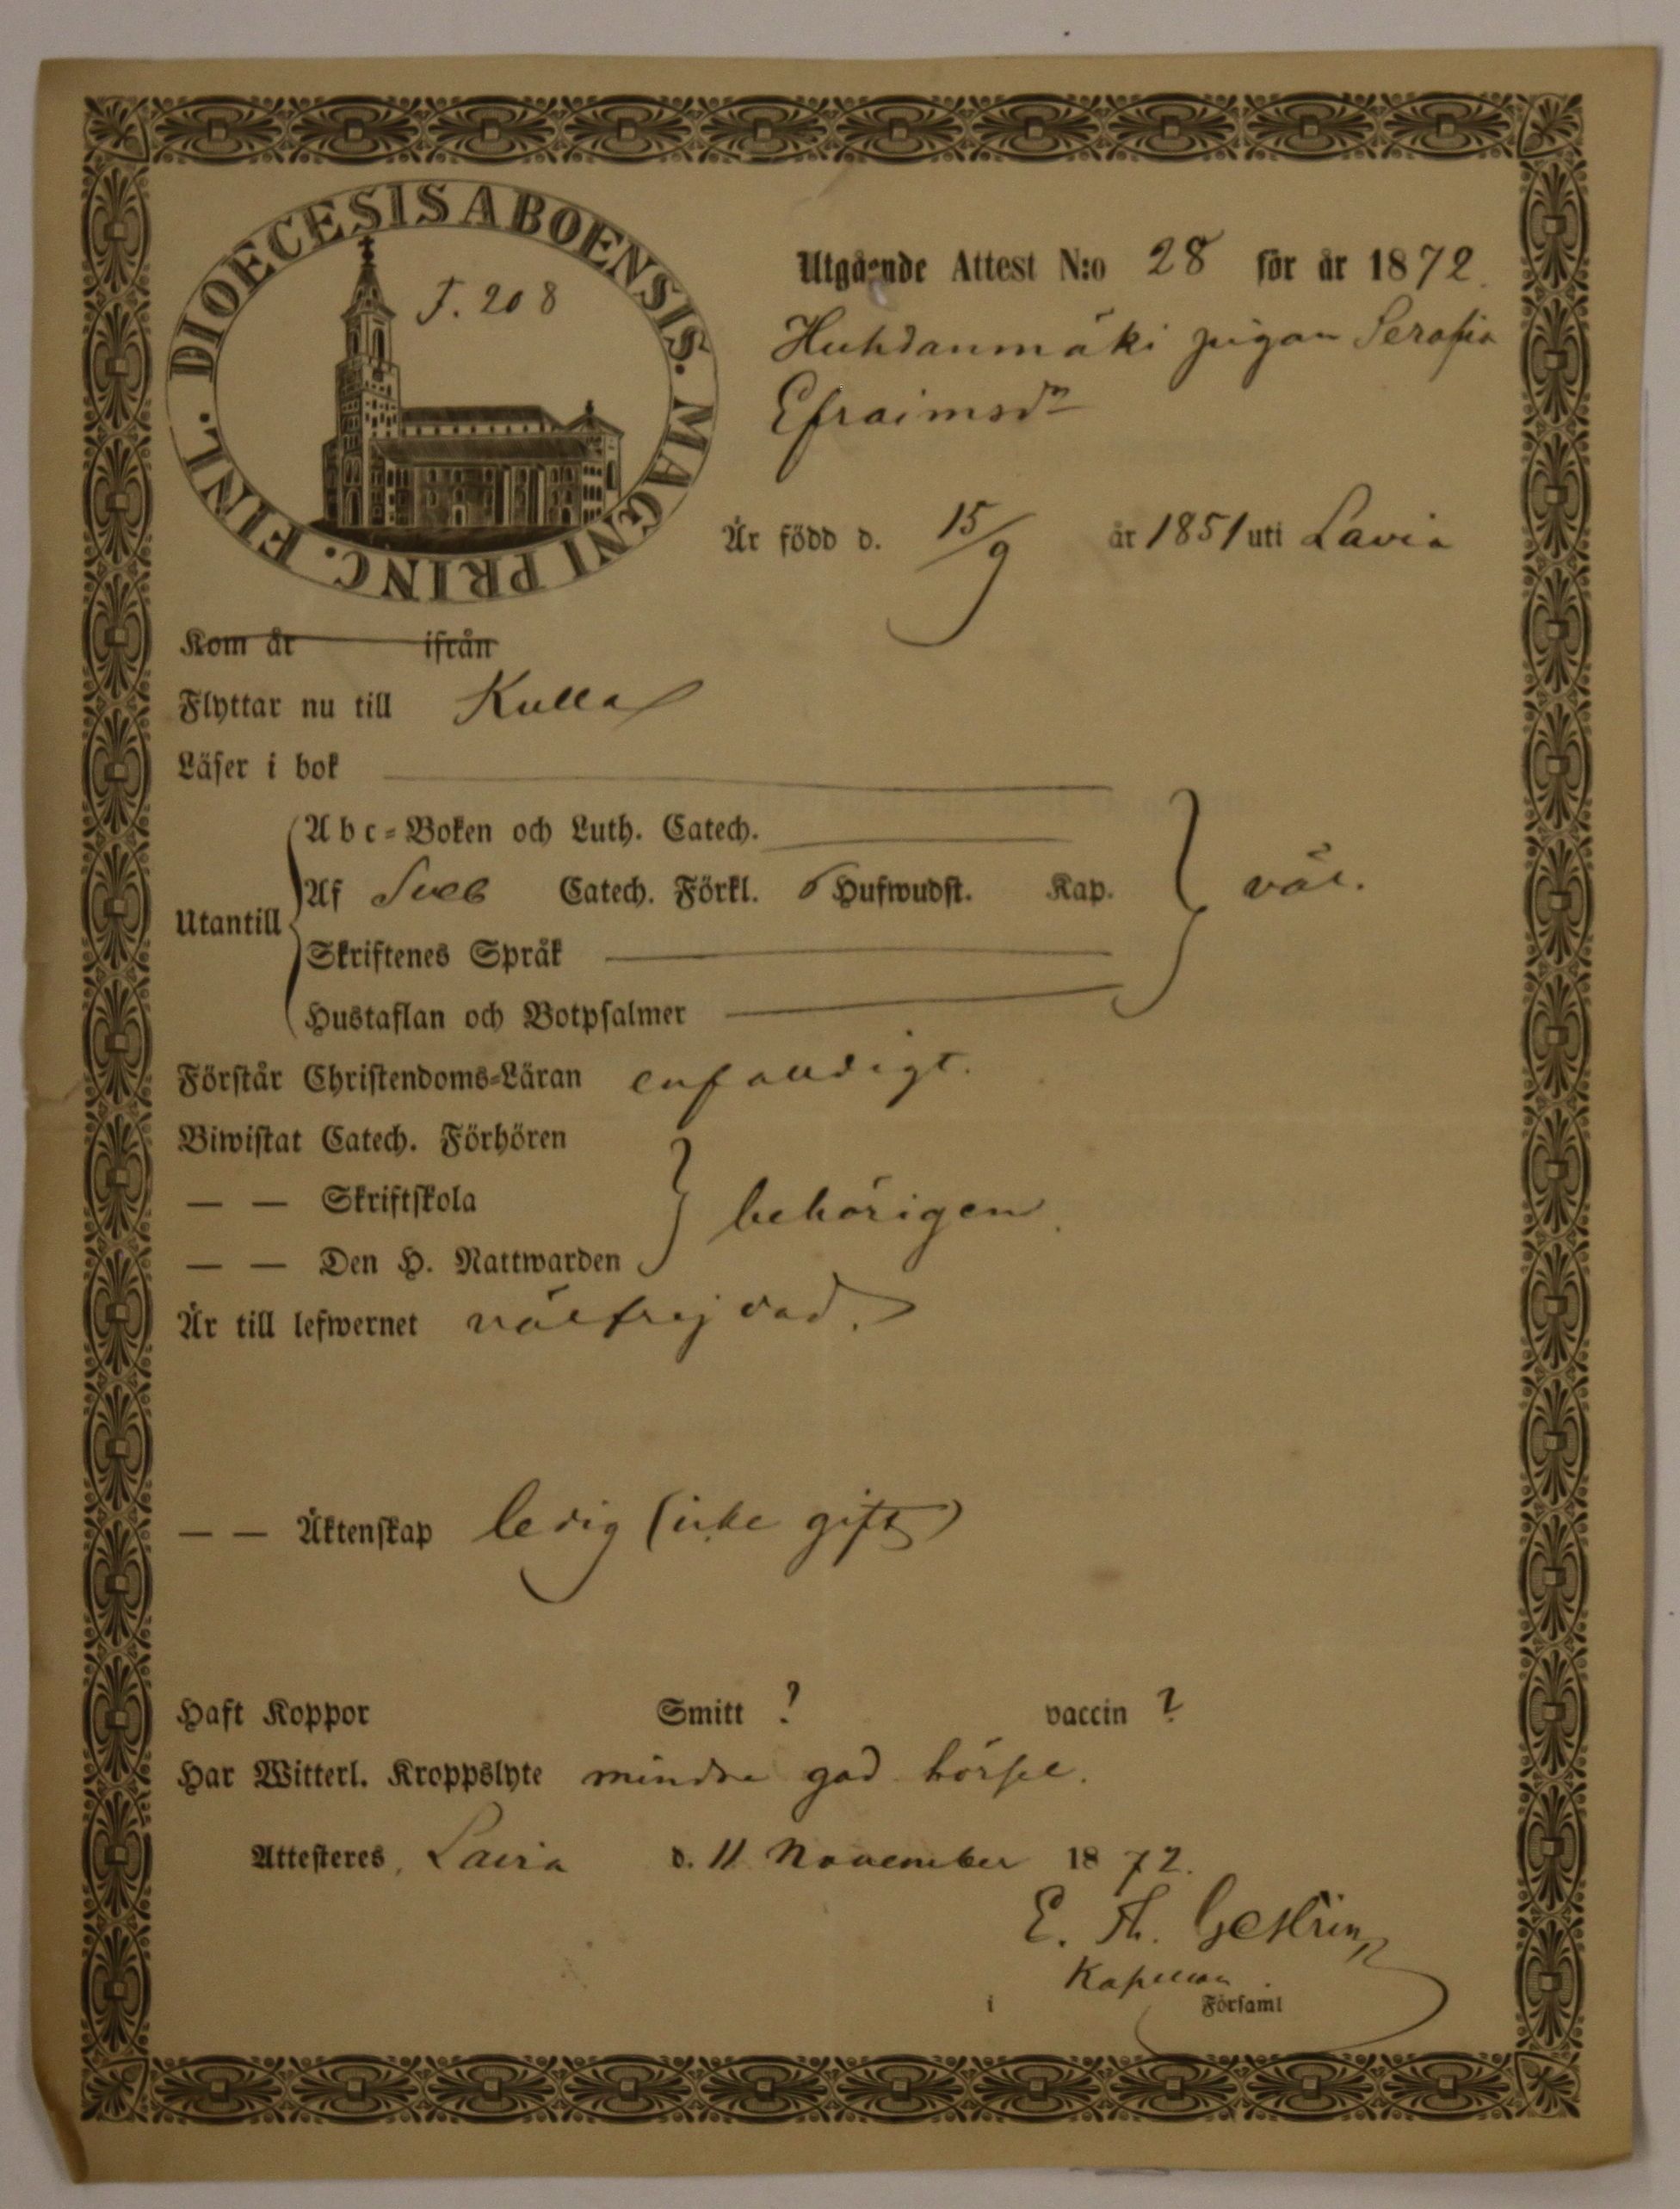 DIOECESIS ABOENSIS. MAGNI PRINC. FINL.
F. 208
Utgående Attest N:o 28 för år 1872.
Huhdanmäki pigan Serafia
Efraimsdr
Är född d. 15/9 år 1851 uti Lavia
Kom år ifrån
Flyttar nu till Kulla
Läser i bok
Utantill
Abc-Boken och Luth. Catech.
Af Sveb Catech. Förkl. 6 Hufwudst. Kap. väl.
Skriftenes Språk
Hustaflan och Botpsalmer
Förstår Christendoms-Läran enfalldigt.
Biwistat Catech. Förhören
— — Skriftskola behörigen.
— — Den H. Nattwarden
Är till lefwernet välfrejdad.
— — Äktenskap ledig (icke gift)
Haft Koppor Smitt ? vaccin ?
Har Witterl. Kroppslyte mindre god hörsel.
Attesteres, Lavia d. 11 November 1872.
E. Th. Gestrin
Kapellan.
i Församl